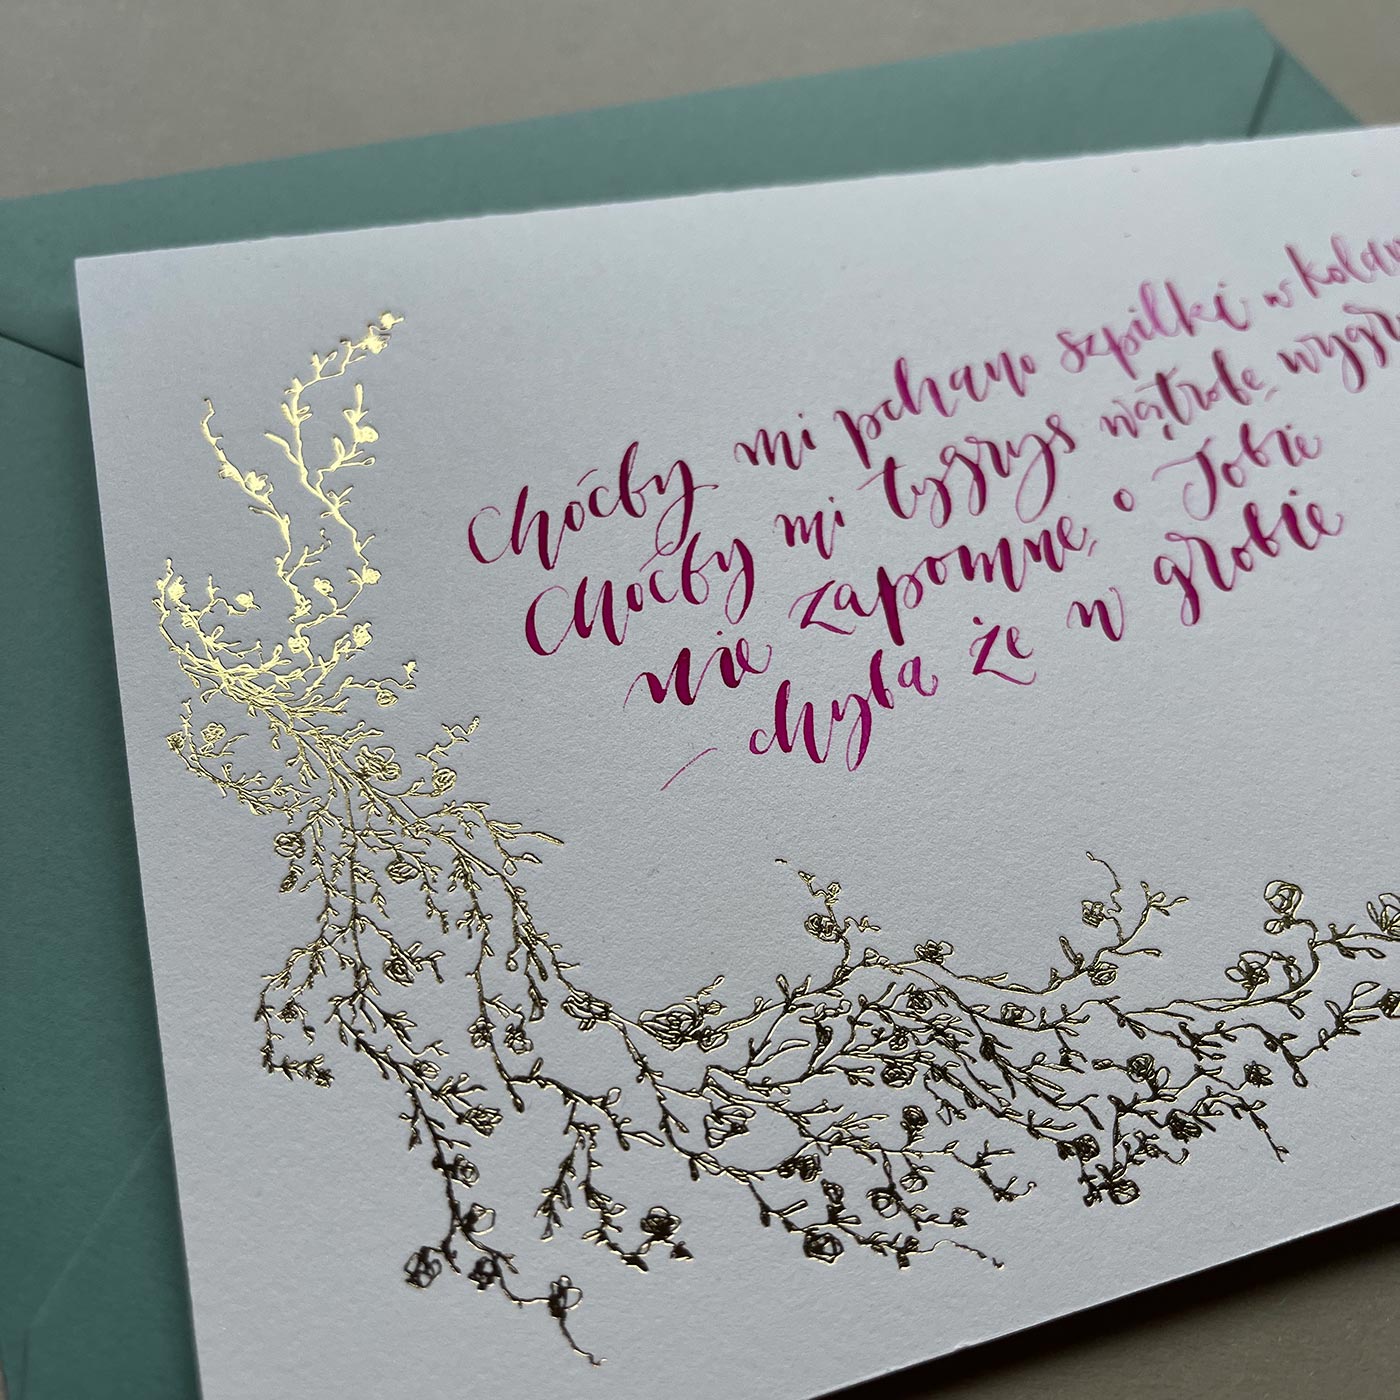 Choćby mi pchano szpilki w
Choćby mi tygrys wątrobę
nie zapomnę o Tobie
– chyba że w grobie